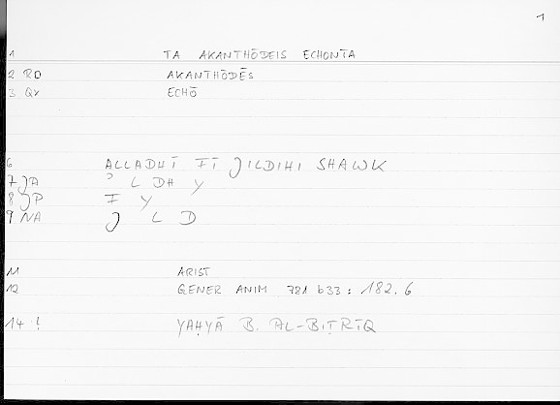 1
1 TA AKANTHŌDEIS ECHONTA
2 RD AKANTHŌDĒS
3 QV ECHŌ
6 ALLADHĪ FĪ JILDIHI SHAWK
7 JA ʾ L DH Y
8 JP F Y
9 NA J L D
11 ARIST
12 GENER ANIM 781 b33 : 182.6
14 ! YAḤYĀ B. AL-BIṬRĪQ